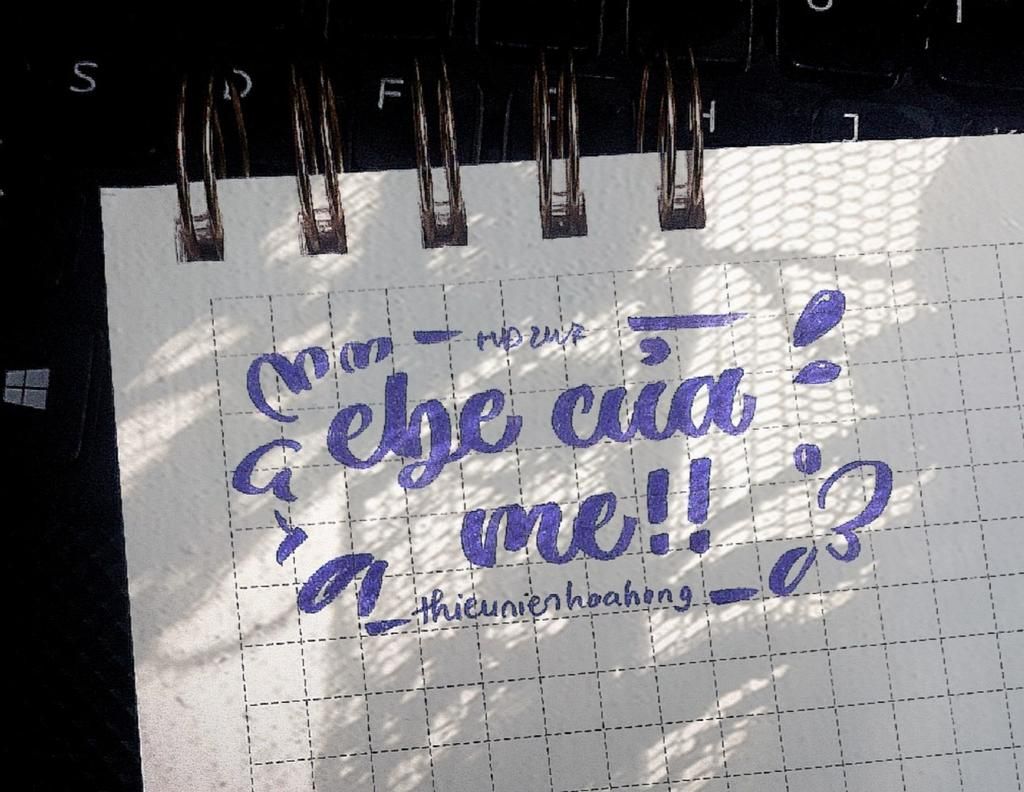 S D F H J
ebe của
me!!
thieunienhoahong